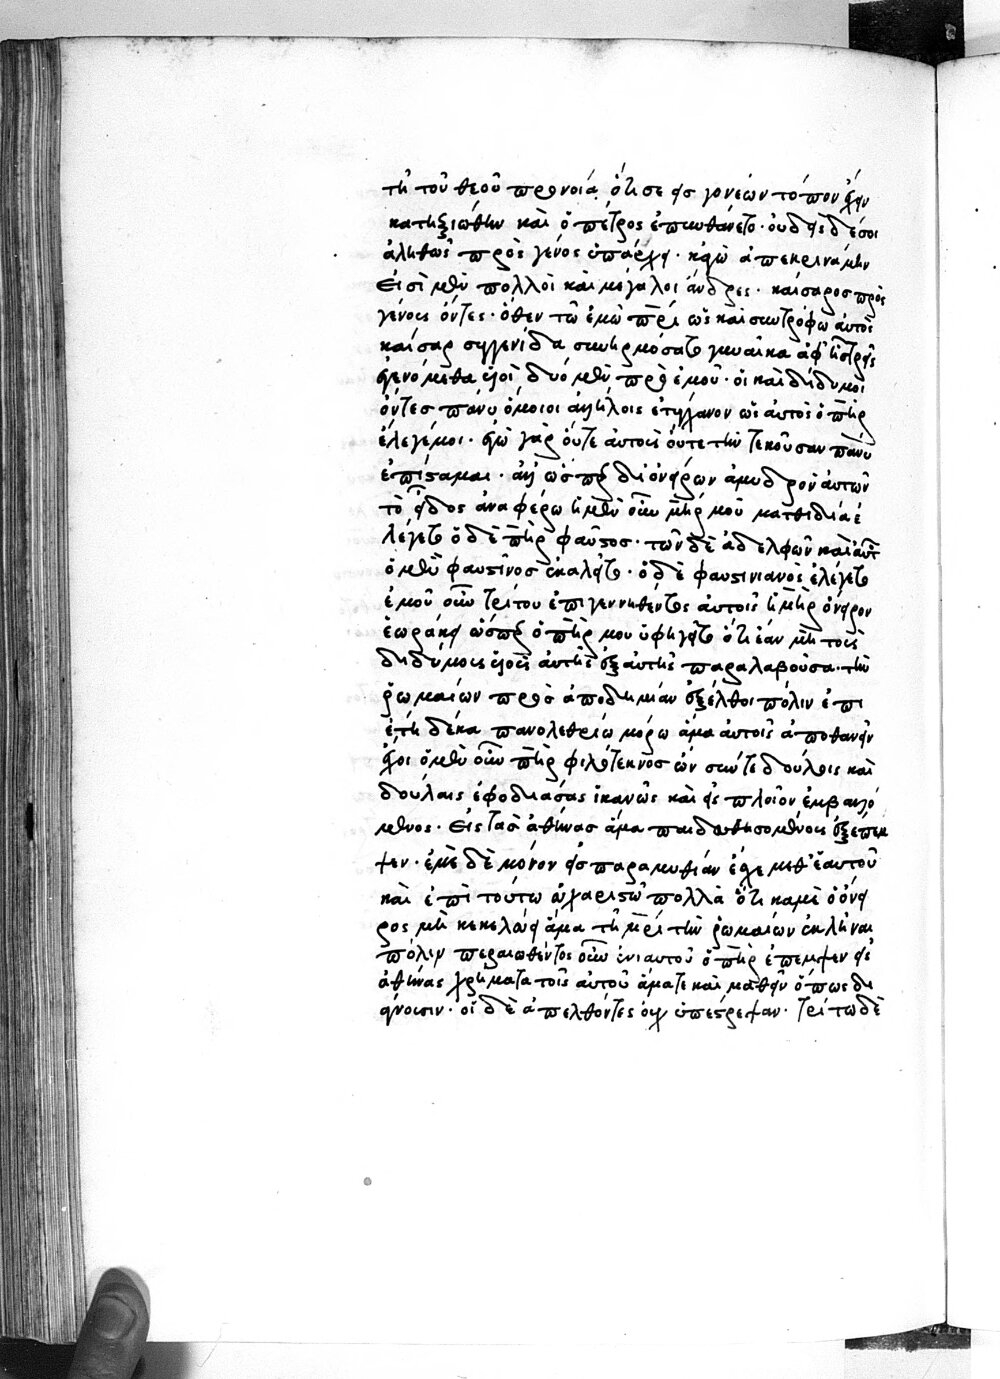 τῆ τοῦ θεοῦ προνοία, ὅτι σε εἰς γονέων τόπον ἔχειν
κατηξιώθην καὶ ὁ πέτρος ἐπυνθάνετο· οὐδεὶς δέ σοι
ἀληθῶς πρὸς γένος ὑπάρχει· κἀγὼ ἀπεκρινάμην
εἰσὶ μὲν πολλοὶ καὶ μεγάλοι ἄνδρες· καίσαρος πρὸς
γένους ὄντες· ὅθεν τῶ ἐμῶ πρὶ ὡς καὶ συντρόφω αὐτὸς
καίσαρ συγγενίδα συνηρμόσατο γυναῖκα ἀφ' ἧς τρεῖς
ἐγενόμεθα υἱοὶ δύο μὲν πρὸ ἐμοῦ· οἳ καὶ δίδυμοι
ὄντες πάνυ ὅμοιοι ἀλλήλοις ἐτύγχανον ὡς αὐτὸς ὁ πὴρ
ἔλεγέ μοι· ἐγὼ γὰρ οὔτε αὐτοὺς οὔτε τὴν τεκοῦσαν πάνυ
ἐπίσταμαι· ἀλλ' ὥσπερ δι' ὀνείρων ἀμυδρὸν αὐτῶν
τὸ εἶδος ἀναφέρω ἡ μὲν οὖν μήρ μου ματθιδία ἐ
λέγετο ὁ δὲ πὴρ φαῦστος· τῶν δὲ ἀδελφῶν καὶ αὐτῶν
ὁ μὲν φαυστῖνος ἐκαλεῖτο· ὁ δὲ φαυστινιανὸς ἐλέγετο
ἐμοῦ οὖν τρίτου ἐπιγεννηθέντος αὐτοῖς ἡ μὴρ ὄνειρον
ἑωράκει ὥσπερ ὁ πὴρ μου ὑφηγεῖτο ὅτι ἐὰν μὴ τοὺς
διδύμους υἱοὺς αὐτῆς ἐξ αὐτῆς παραλαβοῦσα· τὴν
ῥωμαίων πρὸς ἀποδημίαν ἐξέλθοι πόλιν ἐπὶ
ἔτη δέκα πανολεθρίω μόρω ἅμα αὐτοῖς ἀποθανεῖν
ἔχοι ὁ μὲν οὖν πὴρ φιλότεκνος ὢν σύν τε δούλοις καὶ
δούλαις ἐφοδιάσας ἱκανῶς καὶ εἰς πλοῖον ἐμβαλλό
μενος· εἰς τὰς ἀθήνας ἅμα παιδευθησομένοις ἐξέπεμ
ψεν· ἐμὲ δὲ μόνον εἰς παραμυθίαν ἔχε μεθ' ἑαυτοῦ
καὶ ἐπὶ τούτω εὐχαριστῶ πολλὰ ὅτι καμὲ ὁ ὄνει
ρος μὴ κεκελεύκει ἅμα τῆ μρὶ τὴν ῥωμαίων ἐκλῆναι
πόλιν περαιωθέντος οὖν ἐνιαυτοῦ ὁ πὴρ ἔπεμψεν εἰς
ἀθήνας χρήματα τοῖς αὐτοῦ ἅμα τε καὶ μαθεῖν ὅπως δι
άγουσιν· οἱ δὲ ἀπελθόντες οὐχ ὑπέστρεψαν· τρίτω δὲ